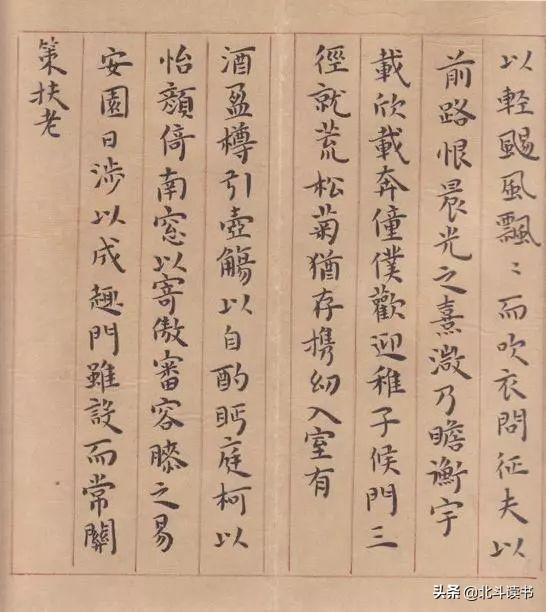 以輕颺風飄〻而吹衣問征夫以
前路恨晨光之熹微乃瞻衡宇
載欣載奔僮僕歡迎稚子候門三
徑就荒松菊猶存携幼入室有
酒盈樽引壺觴以自酌眄庭柯以
怡顏倚南窓以寄傲審容膝之易
安園日涉以成趣門雖設而常關
策扶老
头条 @北斗读书